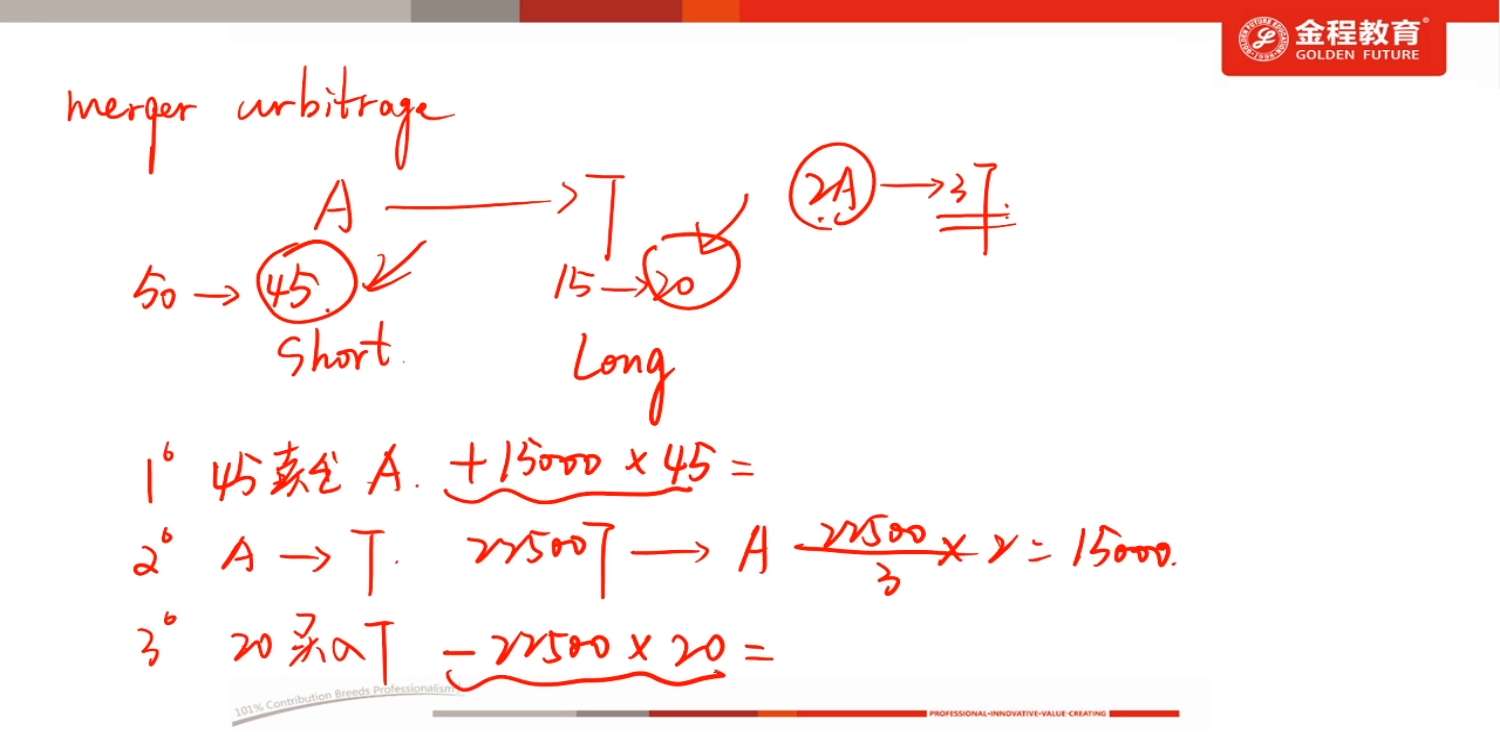 金程教育®
GOLDEN FUTURE
merger arbitrage
A → T
2A → 3T.
50 → 45
15 → 20
Short.
Long
1° 45卖空 A. +15000 × 45 =
2° A → T. 22500T → A 22500/3 × 2 = 15000.
3° 20 买入T -22500 × 20 =
101% Contribution Breeds Professionalism
PROFESSIONAL•INNOVATIVE•VALUE-CREATING